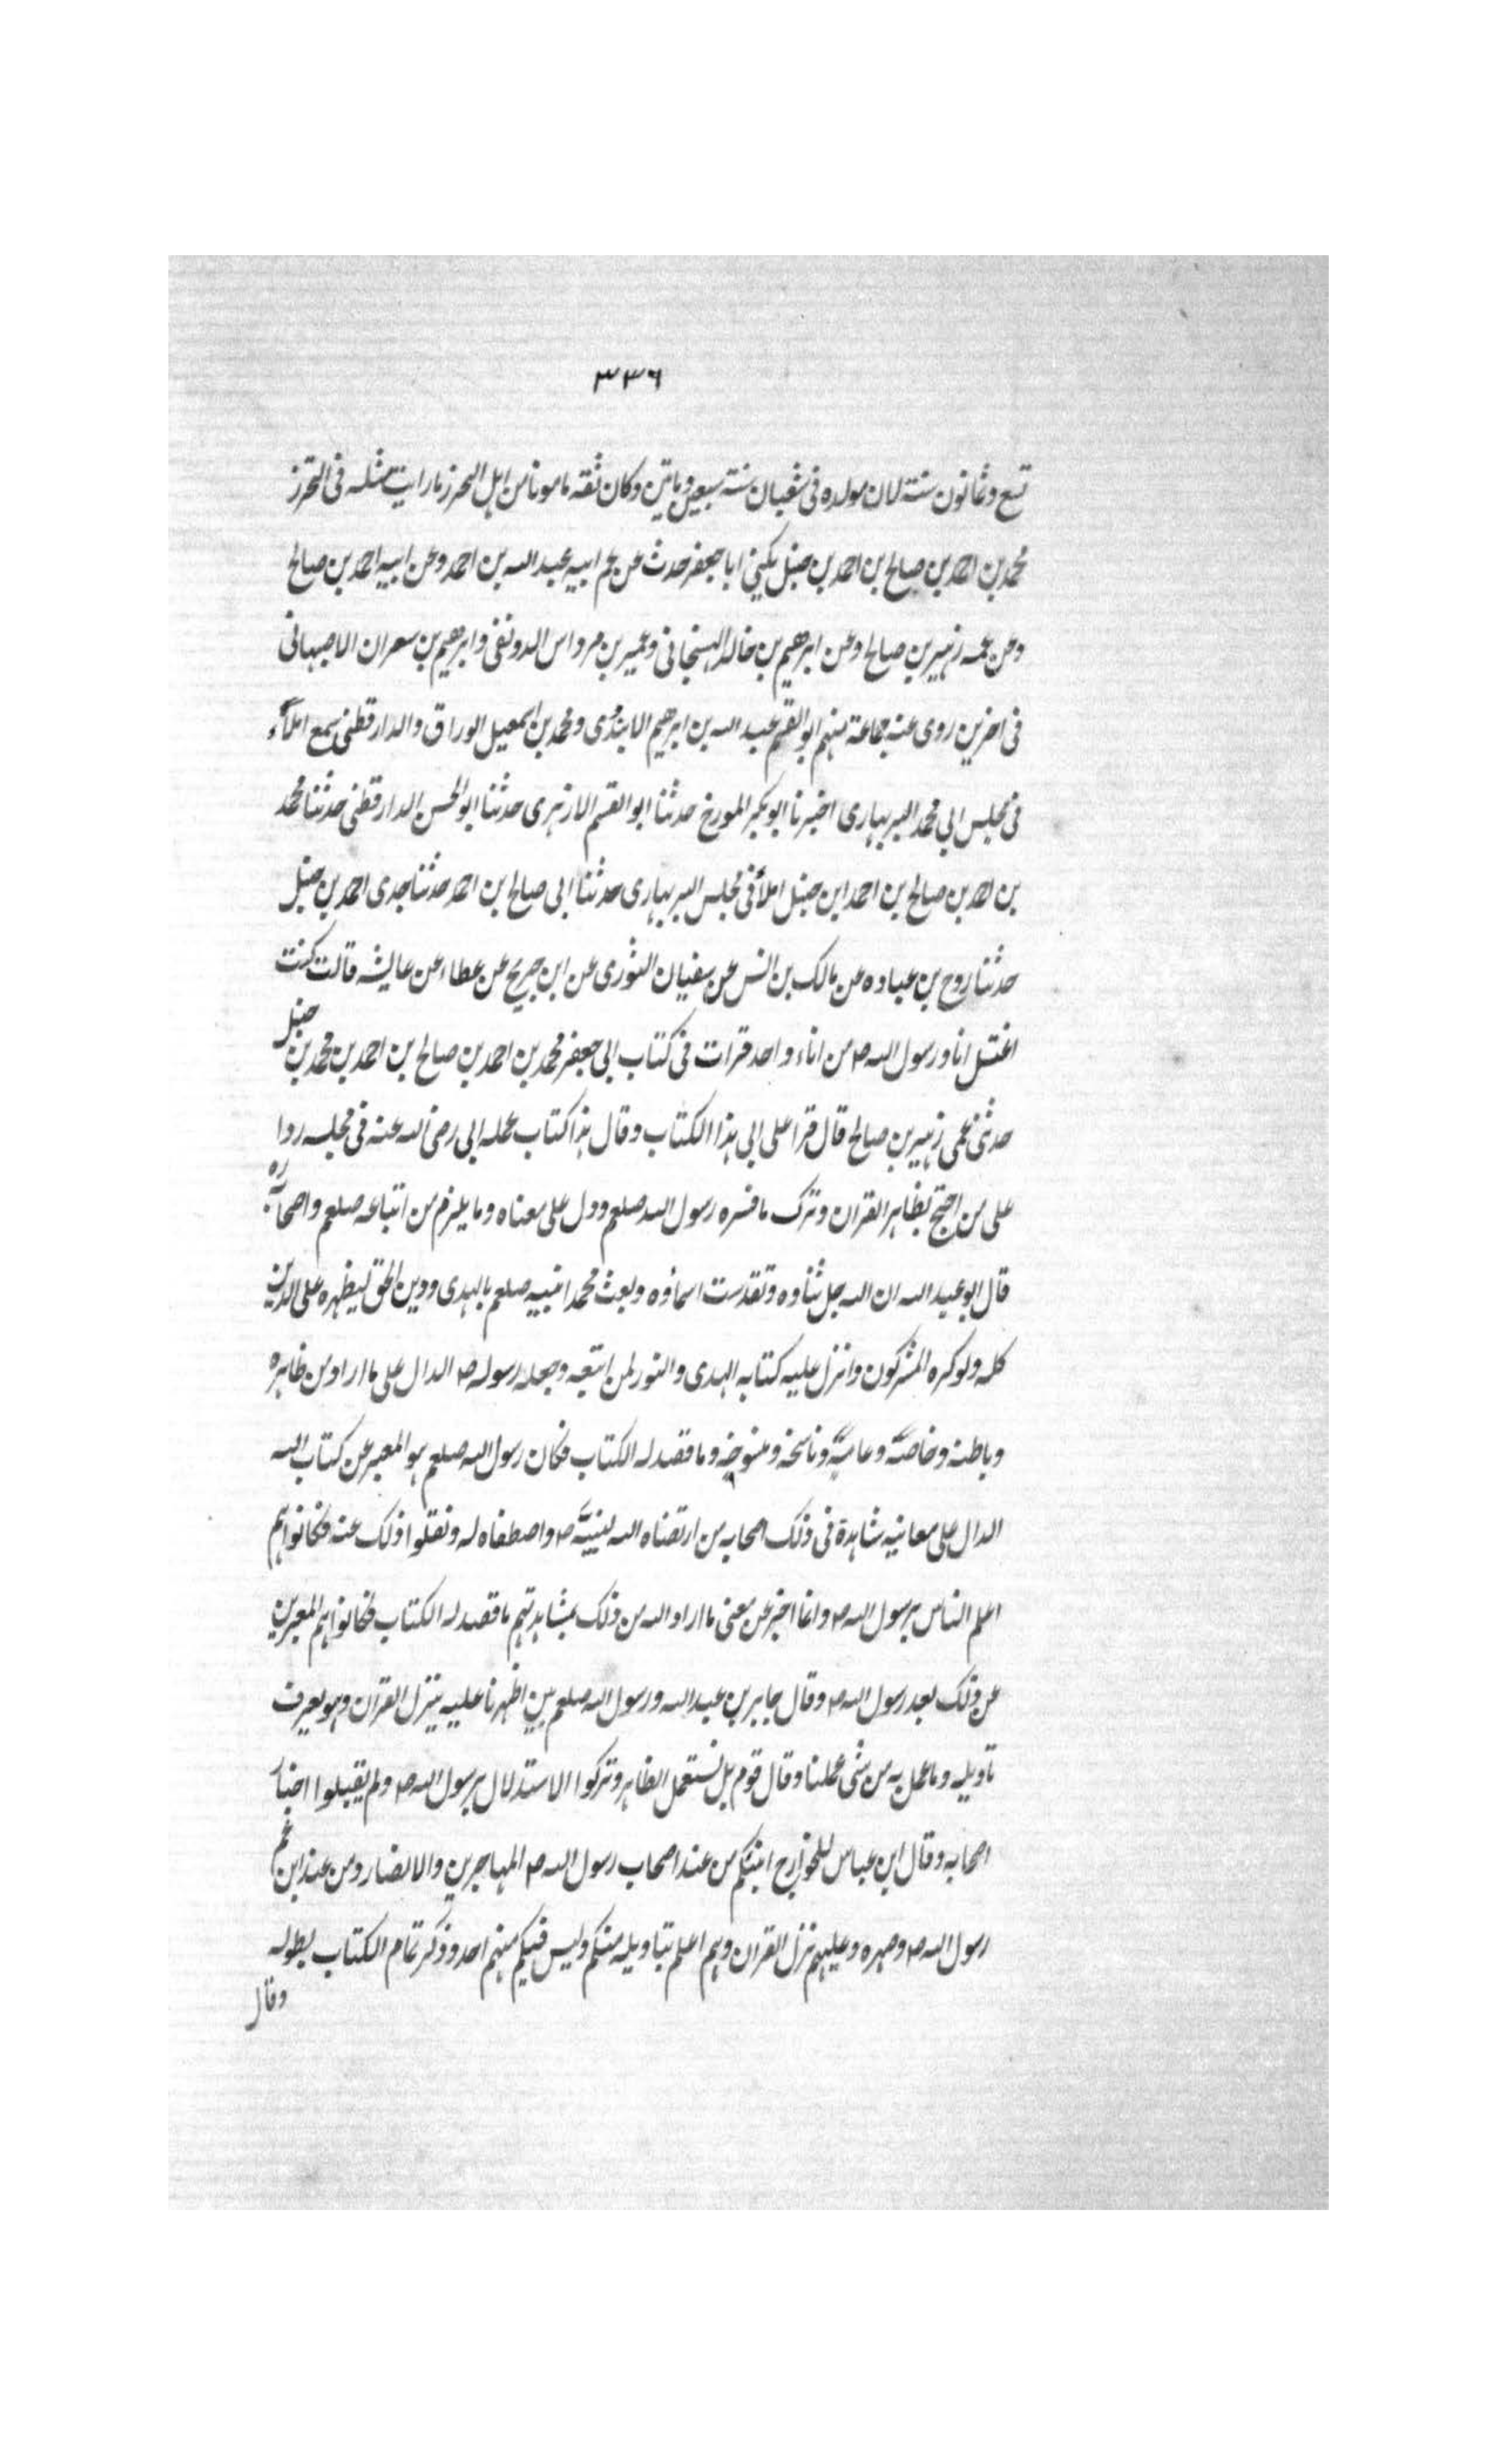 ٣٣٦
تسع وثمانون سنة لان مولده فى شعبان سنة سبعين وماتين وكان ثقة مامونا من اهل التحرز ما رايت مثله فى التحرز
محمد بن احمد بن صالح بن احمد بن حنبل يكنى ابا جعفر حدث عن عم ابيه عبد الله بن احمد وعن ابيه احمد بن صالح
وعن عمه زهير بن صالح وعن ابرهيم بن خالد الهسنجانى وعمير بن مرداس الدونقى وابرهيم بن سعران الاصبهانى
فى اخرين روى عنه جماعة منهم ابو القسم عبد الله بن ابرهيم الابندونى ومحمد بن اسمعيل الوراق والدارقطنى سمع املآء
فى مجلس ابى محمد البربهارى اخبرنا ابو بكر المورخ حدثنا ابو القسم الازهرى حدثنا ابو الحسن الدارقطنى حدثنا محمد
بن احمد بن صالح بن احمد ابن حنبل املأ فى مجلس البربهارى حدثنا ابى صالح بن احمد حدثنا جدى احمد بن حنبل
حدثنا روح بن عباده عن مالك بن انس عن سفيان الثورى عن ابن جريج عن عطاء عن عايشه قالت كنت
اغتسل انا ورسول الله ص من اناء واحد قرات فى كتاب ابى جعفر محمد بن احمد بن صالح بن احمد بن محمد بن حنبل
حدثنى عمى زهير بن صالح قال قرا على ابى هذا الكتاب وقال هذا كتاب عمله ابى رضى الله عنه فى مجلسه ردا
على من احتج بظاهر القران وترك ما فسره رسول الله صلعم ودل على معناه وما يلزم من اتباعه صلعم واصحابه ره
قال ابو عبد الله ان الله جل ثناوه وتقدست اسماؤه وبعث محمدا نبيه صلعم بالهدى ودين الحق ليظهره على الدين
كله ولو كره المشركون وانزل عليه كتابه الهدى والنور لمن اتبعه وجعله رسوله ص الدال على ما اراد من ظاهره
وباطنه وخاصه وعامه وناسخه ومنسوخه وما قصد له الكتاب فكان رسول الله صلعم هو المعبر عن كتاب الله
الدال على معانيه شاهدة فى ذلك اصحابه من ارتضاه الله لنبيه ص واصطفاه له ونقلوا ذلك عنه فكانوا هم
اعلم الناس برسول الله ص وانما اخبر عن معنى ما اراد الله من ذلك بمشاهدتهم ما قصد له الكتاب فكانوا هم المعبرين
عن ذلك بعد رسول الله ص وقال جابر بن عبد الله ورسول الله صلعم بين اظهرنا عليه ينزل القران وهو يعرف
تاويله وما عمل به من شى عملنا وقال قوم بل نستعمل الظاهر وتركوا الاستدلال برسول الله ص ولم يقبلوا اخبار
اصحابه وقال ابن عباس للخوارج اتيتكم من عند اصحاب رسول الله ص المهاجرين والانصار ومن عند ابن عم
رسول الله ص وصهره وعليهم نزل القران وهم اعلم بتاويله منكم وليس فيكم منهم احد وذكر تمام الكتاب بطوله
وقال